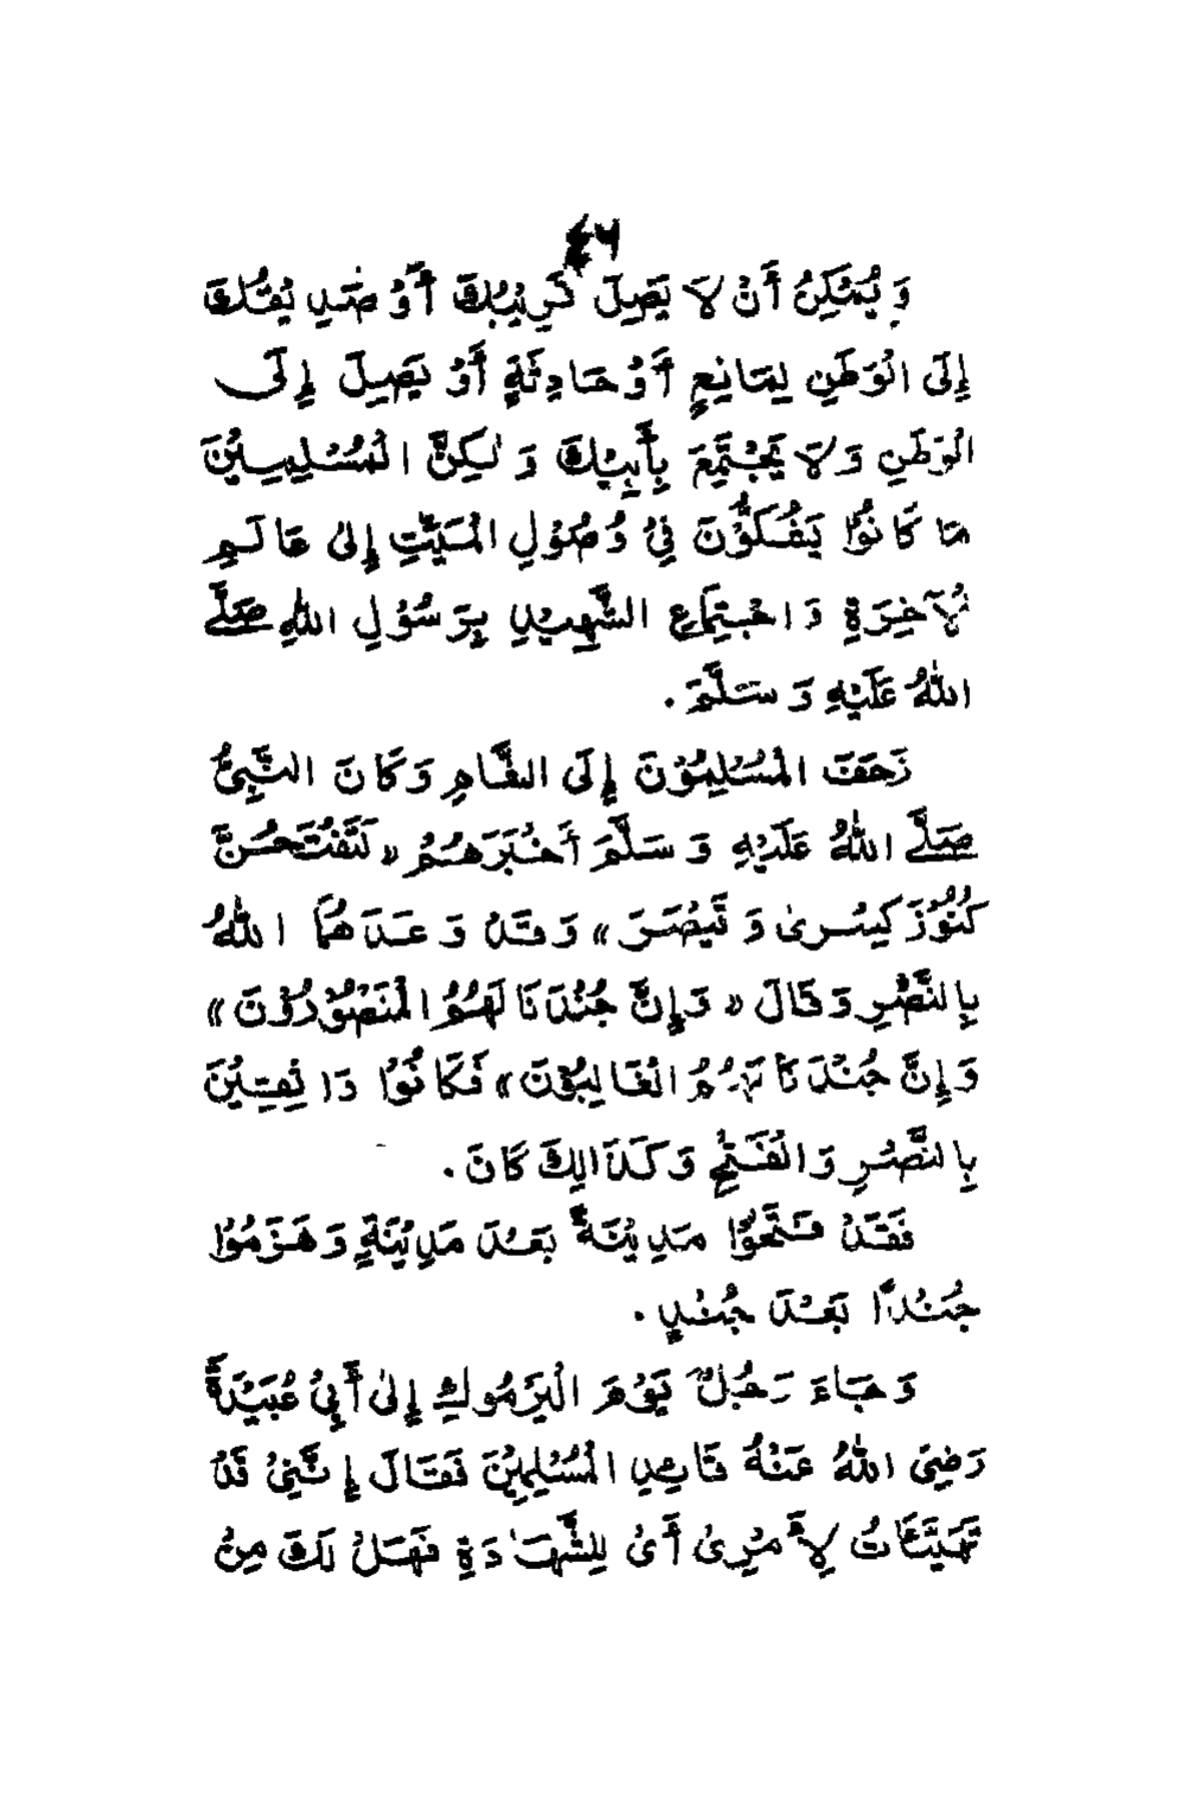 ٤٦
وَ يُمْكِنُ أَنْ لاَ يَصِلَ قَرِيْبُكَ أَوْ صَدِيْقُكَ
إِلَى الْوَطَنِ لِمَانِعٍ أَوْ حَادِثَةٍ أَوْ يَصِلَ إِلَى
الْوَطَنِ وَلاَ يَجْتَمِعَ بِأَبِيْكَ وَ لٰكِنَّ الْمُسْلِمِيْنَ
مَا كَانُوْا يَشُكُّوْنَ فِيْ وُصُوْلِ الْمَيِّتِ إِلىٰ عَالَمِ
الْآخِرَةِ وَاجْتِمَاعِ الشَّهِيْدِ بِرَسُوْلِ اللهِ صَلَّى
اللهُ عَلَيْهِ وَ سَلَّمَ .
زَحَفَ الْمُسْلِمُوْنَ إِلَى الشَّامِ وَكَانَ النَّبِيُّ
صَلَّى اللهُ عَلَيْهِ وَ سَلَّمَ أَخْبَرَهُمْ «لَتَفْتَحُنَّ
كُنُوْزَ كِسْرىٰ وَ قَيْصَرَ» وَ قَدْ وَ عَدَهُمُ اللهُ
بِالنَّصْرِ وَ قَالَ «وَإِنَّ جُنْدَنَا لَهُمُ الْمَنْصُوْرُوْنَ»
وَإِنَّ جُنْدَنَا لَهُمُ الْغَالِبُوْنَ» فَكَانُوْا وَاثِقِيْنَ
بِالنَّصْرِ وَالْفَتْحِ وَ كَذَالِكَ كَانَ .
فَقَدْ فَتَحُوْا مَدِيْنَةً بَعْدَ مَدِيْنَةٍ وَ هَزَمُوْا
جُنْداً بَعْدَ جُنْدٍ .
وَ جَاءَ رَجُلٌ يَوْمَ الْيَرْمُوكِ إِلىٰ أَبِيْ عُبَيْدَةَ
رَضِيَ اللهُ عَنْهُ قَائِدِ الْمُسْلِمِيْنَ فَقَالَ إِنَّنِيْ قَدْ
تَهَيَّئَاتُ لِأَمْرِىْ أَىْ لِلشَّهَادَةِ فَهَلْ لَكَ مِنْ